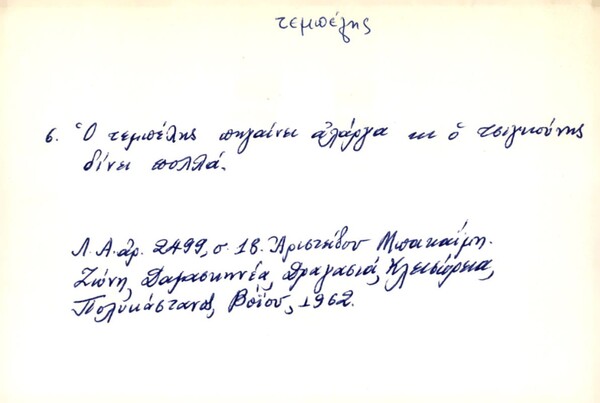 τεμπέλης
6. Ὁ τεμπέλης πηγαίνει ἀλάργα κι ὁ τσιγκούνης
δίνει πολλά.
Λ.Α. ἀρ. 2499, σ. 18. Ἀριστείδου Μπακαΐμη.
Ζώνη, Δαμασκηνέα, Δραγασιά, Κλεισώρεια,
Πολυκάστανος, Βοΐου, 1962.